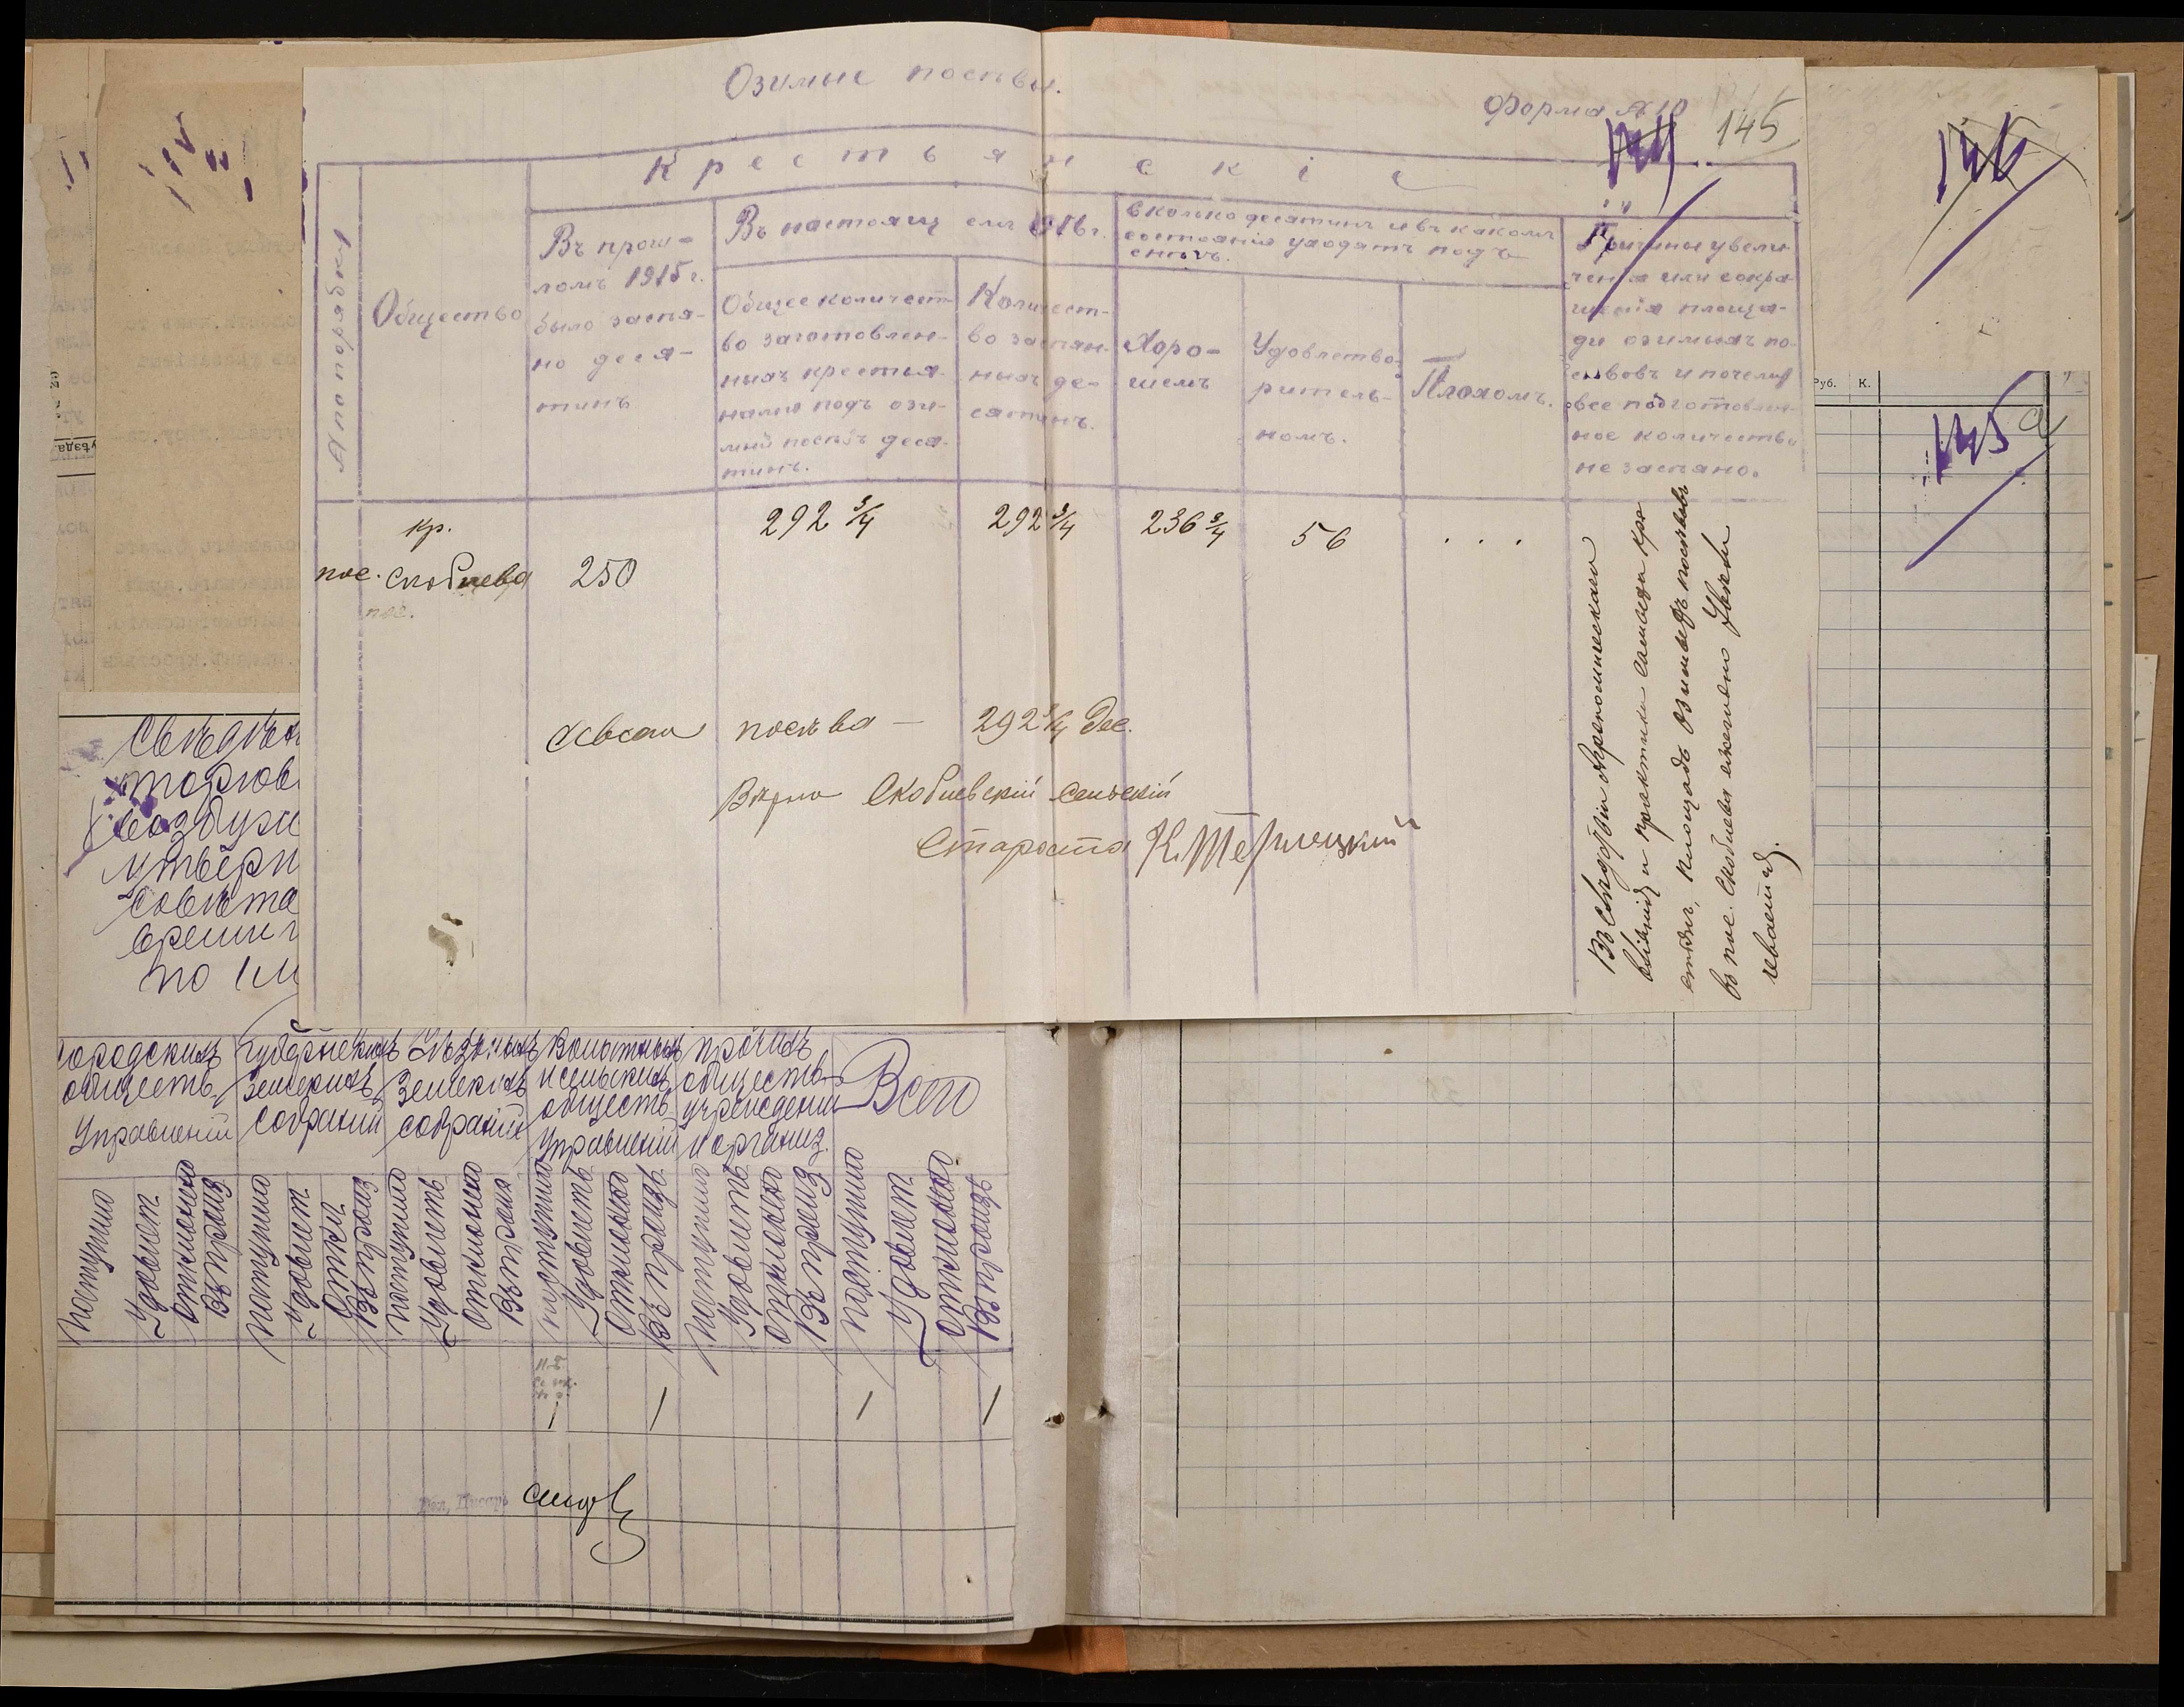 Озимые посѣвы.
Форма № 10
145
Крестьянскіе
№ по порядку
Общество
Въ прош-
ломъ 1915 г.
было засѣя-
но деся-
тинъ
Въ настоящемъ 1916 г.
Общее количест-
во заготовлен-
ныхъ крестья-
нами подъ ози-
мый посѣвъ деся-
тинъ.
Количест-
во засѣян-
ныхъ де-
сятинъ.
Сколько десятинъ и въ какомъ
состояніи уходятъ подъ
снѣгъ.
Хоро-
шемъ
Удовлетво-
ритель-
номъ.
Плохомъ.
Причины увели-
ченія или сокра-
щенія площа-
ди озимыхъ по-
сѣвовъ и почему
все подготовлен-
ное количество
не засѣяно.
кр.
пос. Скобиева 250
292 3/4
292 3/4
236 3/4
56
. . .
пос.
посѣва — 292 3/4 дес.
Вѣрно Скобиевскій Сельскій
Староста К. Терлецкий
Въ слѣдствіи Агрономическаго
вліянія и практики самихъ кре
стьянъ, площадь озимыхъ посѣвовъ
въ пос. Скобиева ежегодно увели
чивается.
146
Руб. К.
145 а
уѣзда
Свѣдѣн
торгов
возбужд
утверж
совѣта
времен
по 1 м
Городскихъ
обществ.
Управленій
Губернскихъ
Земскихъ
Собраній
Уѣздныхъ
Земскихъ
собраній
Волостныхъ
и сельскихъ
обществ.
Управленій
прочихъ
обществ.
учрежденій
и организ.
Всего
Поступило
Удовлет.
Отклонено
Въ произ.
Поступило
Удовлет.
Откл.
Въ произ
Поступило
Удовлетв
Отклонено
Въ произ
поступило
Удовлетв.
Отклонено
Въ произв.
Поступило
Удовлетв.
Отклонено
Въ произ
Поступило
Удовлет
Отклонено.
Въ произв
1 1 1 1
Вол. Писарь